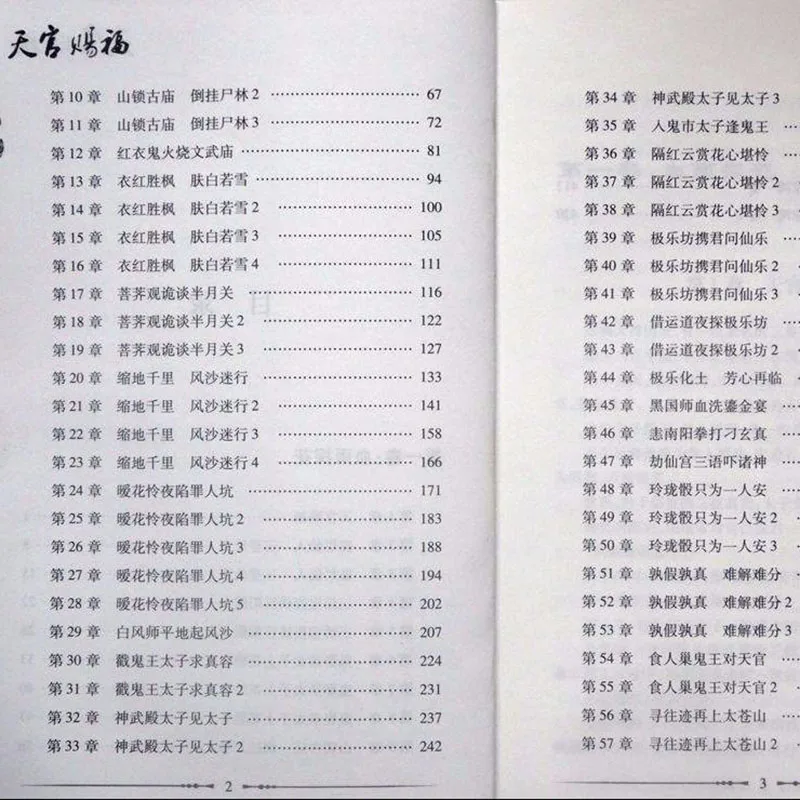 天官赐福
第10章 山锁古庙 倒挂尸林2 …… 67
第11章 山锁古庙 倒挂尸林3 …… 72
第12章 红衣鬼火烧文武庙 …… 81
第13章 衣红胜枫 肤白若雪 …… 94
第14章 衣红胜枫 肤白若雪2 …… 100
第15章 衣红胜枫 肤白若雪3 …… 105
第16章 衣红胜枫 肤白若雪4 …… 111
第17章 菩荠观诡谈半月关 …… 116
第18章 菩荠观诡谈半月关2 …… 122
第19章 菩荠观诡谈半月关3 …… 127
第20章 缩地千里 风沙迷行 …… 133
第21章 缩地千里 风沙迷行2 …… 141
第22章 缩地千里 风沙迷行3 …… 158
第23章 缩地千里 风沙迷行4 …… 166
第24章 暧花怜夜陷罪人坑 …… 171
第25章 暧花怜夜陷罪人坑2 …… 183
第26章 暧花怜夜陷罪人坑3 …… 188
第27章 暧花怜夜陷罪人坑4 …… 194
第28章 暧花怜夜陷罪人坑5 …… 202
第29章 白风师平地起风沙 …… 207
第30章 戳鬼王太子求真容 …… 224
第31章 戳鬼王太子求真容2 …… 231
第32章 神武殿太子见太子 …… 237
第33章 神武殿太子见太子2 …… 242
2
第34章 神武殿太子见太子3
第35章 入鬼市太子逢鬼王 …
第36章 隔红云赏花心堪怜 …
第37章 隔红云赏花心堪怜2
第38章 隔红云赏花心堪怜3
第39章 极乐坊携君问仙乐 …
第40章 极乐坊携君问仙乐2
第41章 极乐坊携君问仙乐3
第42章 借运道夜探极乐坊 …
第43章 借运道夜探极乐坊2
第44章 极乐化土 芳心再临 …
第45章 黑国师血洗鎏金宴 …
第46章 恚南阳拳打刁玄真 …
第47章 劫仙宫三语吓诸神 …
第48章 玲珑骰只为一人安 …
第49章 玲珑骰只为一人安2
第50章 玲珑骰只为一人安3
第51章 孰假孰真 难解难分
第52章 孰假孰真 难解难分2
第53章 孰假孰真 难解难分3
第54章 食人巢鬼王对天官 …
第55章 食人巢鬼王对天官2
第56章 寻往迹再上太苍山 …
第57章 寻往迹再上太苍山2
3